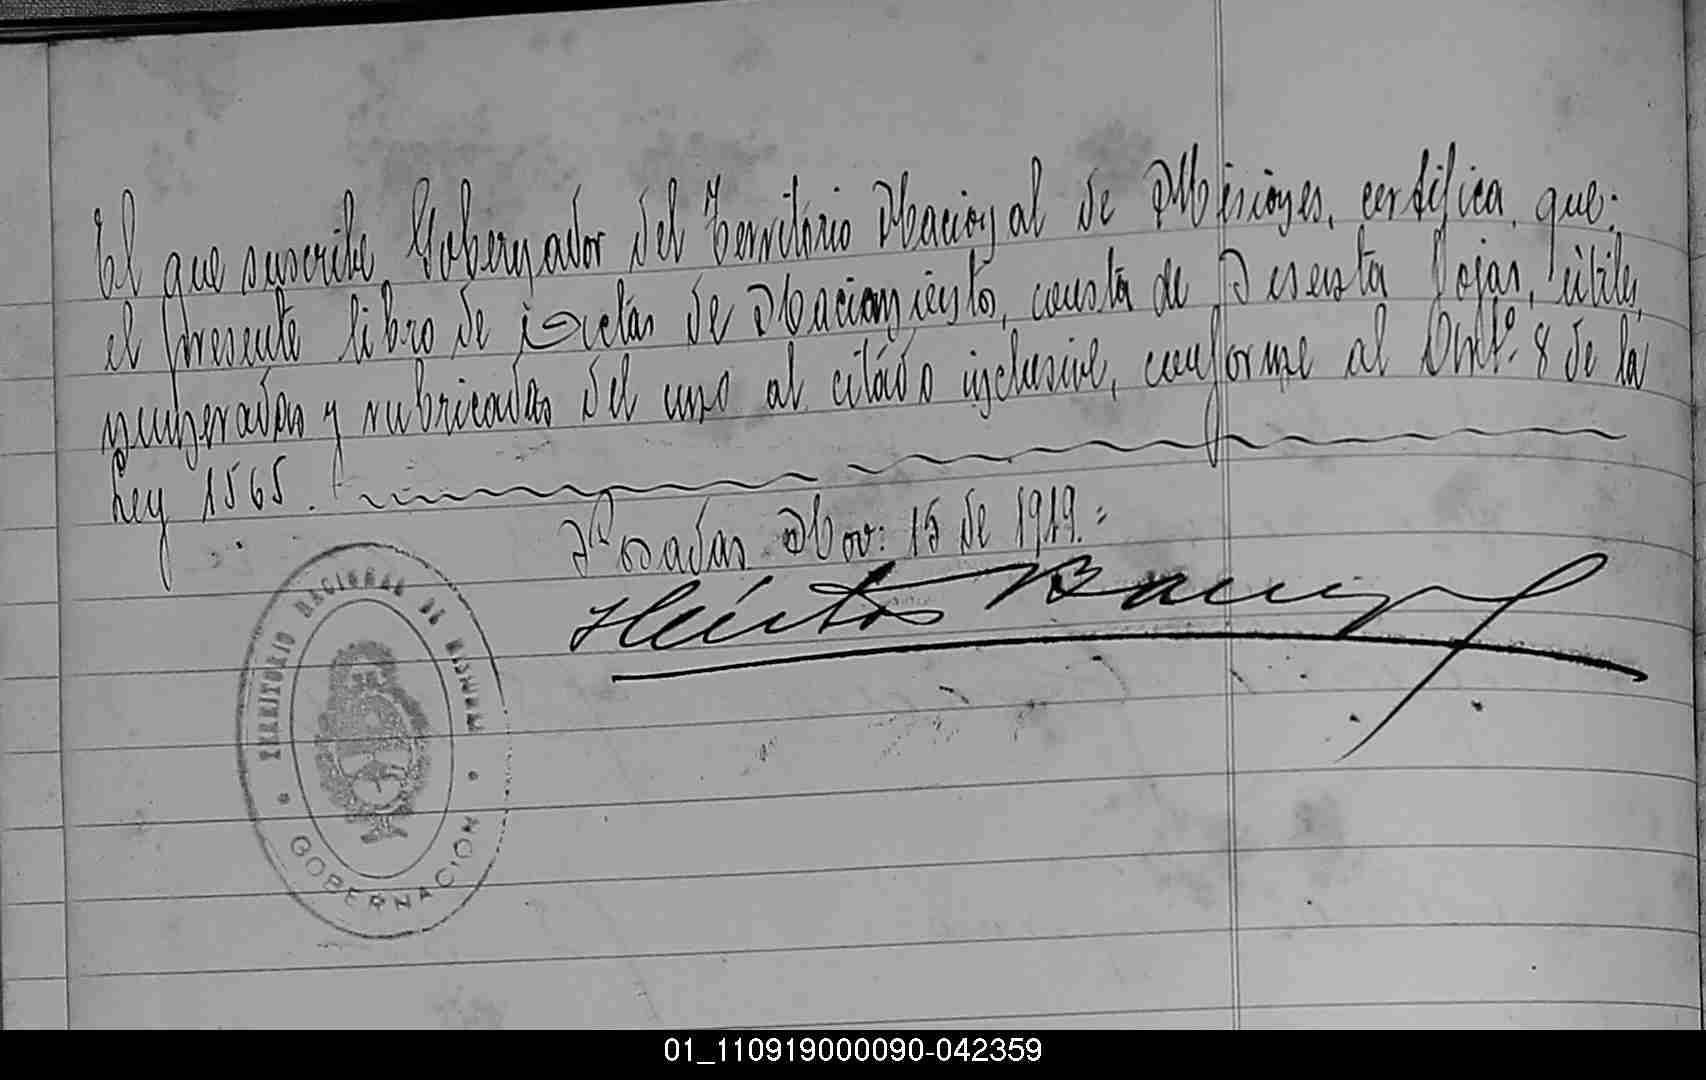 El que suscribe Gobernador del Territorio Nacional de Misiones, certifica que:
el presente libro de Actas de Nacimiento, consta de sesenta fojas, útiles,
numeradas y rubricadas del uno al citado inclusive, conforme al Art.º 8 de la
Ley 1565.
Posadas Nov: 15 de 1919.
Héctor Barreyro
TERRITORIO NACIONAL DE MISIONES
GOBERNACIÓN
01_110919000090-042359